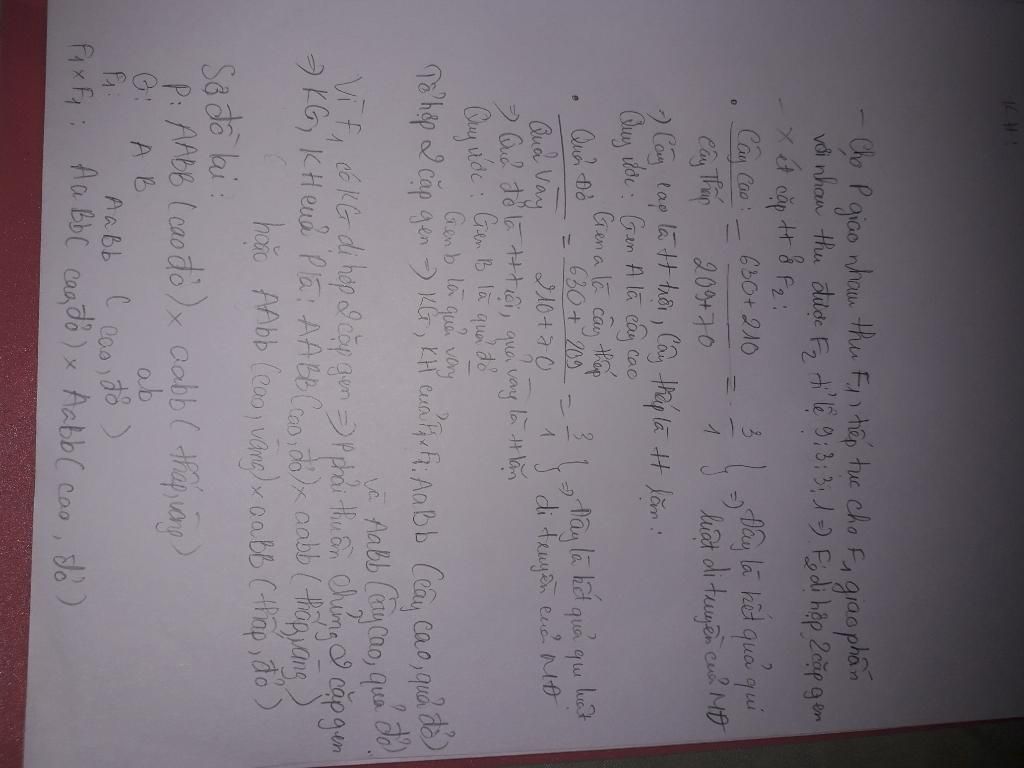 KH:
- Cho P giao nhau thu F1, tiếp tục cho F1 giao phấn
với nhau thu được F2 tỉ lệ 9:3:3:1 => F2 dị hợp 2 cặp gen
- Xét cặp tt ở F2:
• Cây cao : / Cây thấp = 630+210 / 209+70 = 3 / 1 } => Đây là kết quả qui luật di truyền của MĐ
=> Cây cao là tt trội, Cây thấp là tt lặn :
Quy ước: Gen A là cây cao
Gen a là cây thấp
• Quả đỏ / Quả vàng = 630+209 / 210+70 = 3 / 1 } => Đây là kết quả qui luật di truyền của MĐ
=> Quả đỏ là tt trội, quả vàng là tt lặn
Quy ước: Gen B là quả đỏ
Gen b là quả vàng
Tổ hợp 2 cặp gen => KG, KH của F1x F1: AaBb (cây cao, quả đỏ)
và AaBb (cây cao, quả đỏ)
Vì F1 có KG dị hợp 2 cặp gen => P phải thuần chủng 2 cặp gen
=> KG, KH của P là: AABB (cao, đỏ) x aabb (thấp, vàng)
hoặc AAbb (cao, vàng) x aaBB (thấp, đỏ)
Sơ đồ lai :
P: AAbb (cao đỏ) x aabb (thấp, vàng)
G: A B ab
F1: AaBb ( cao, đỏ )
F1 x F1 : AaBb( cao, đỏ) x AaBb( cao , đỏ )